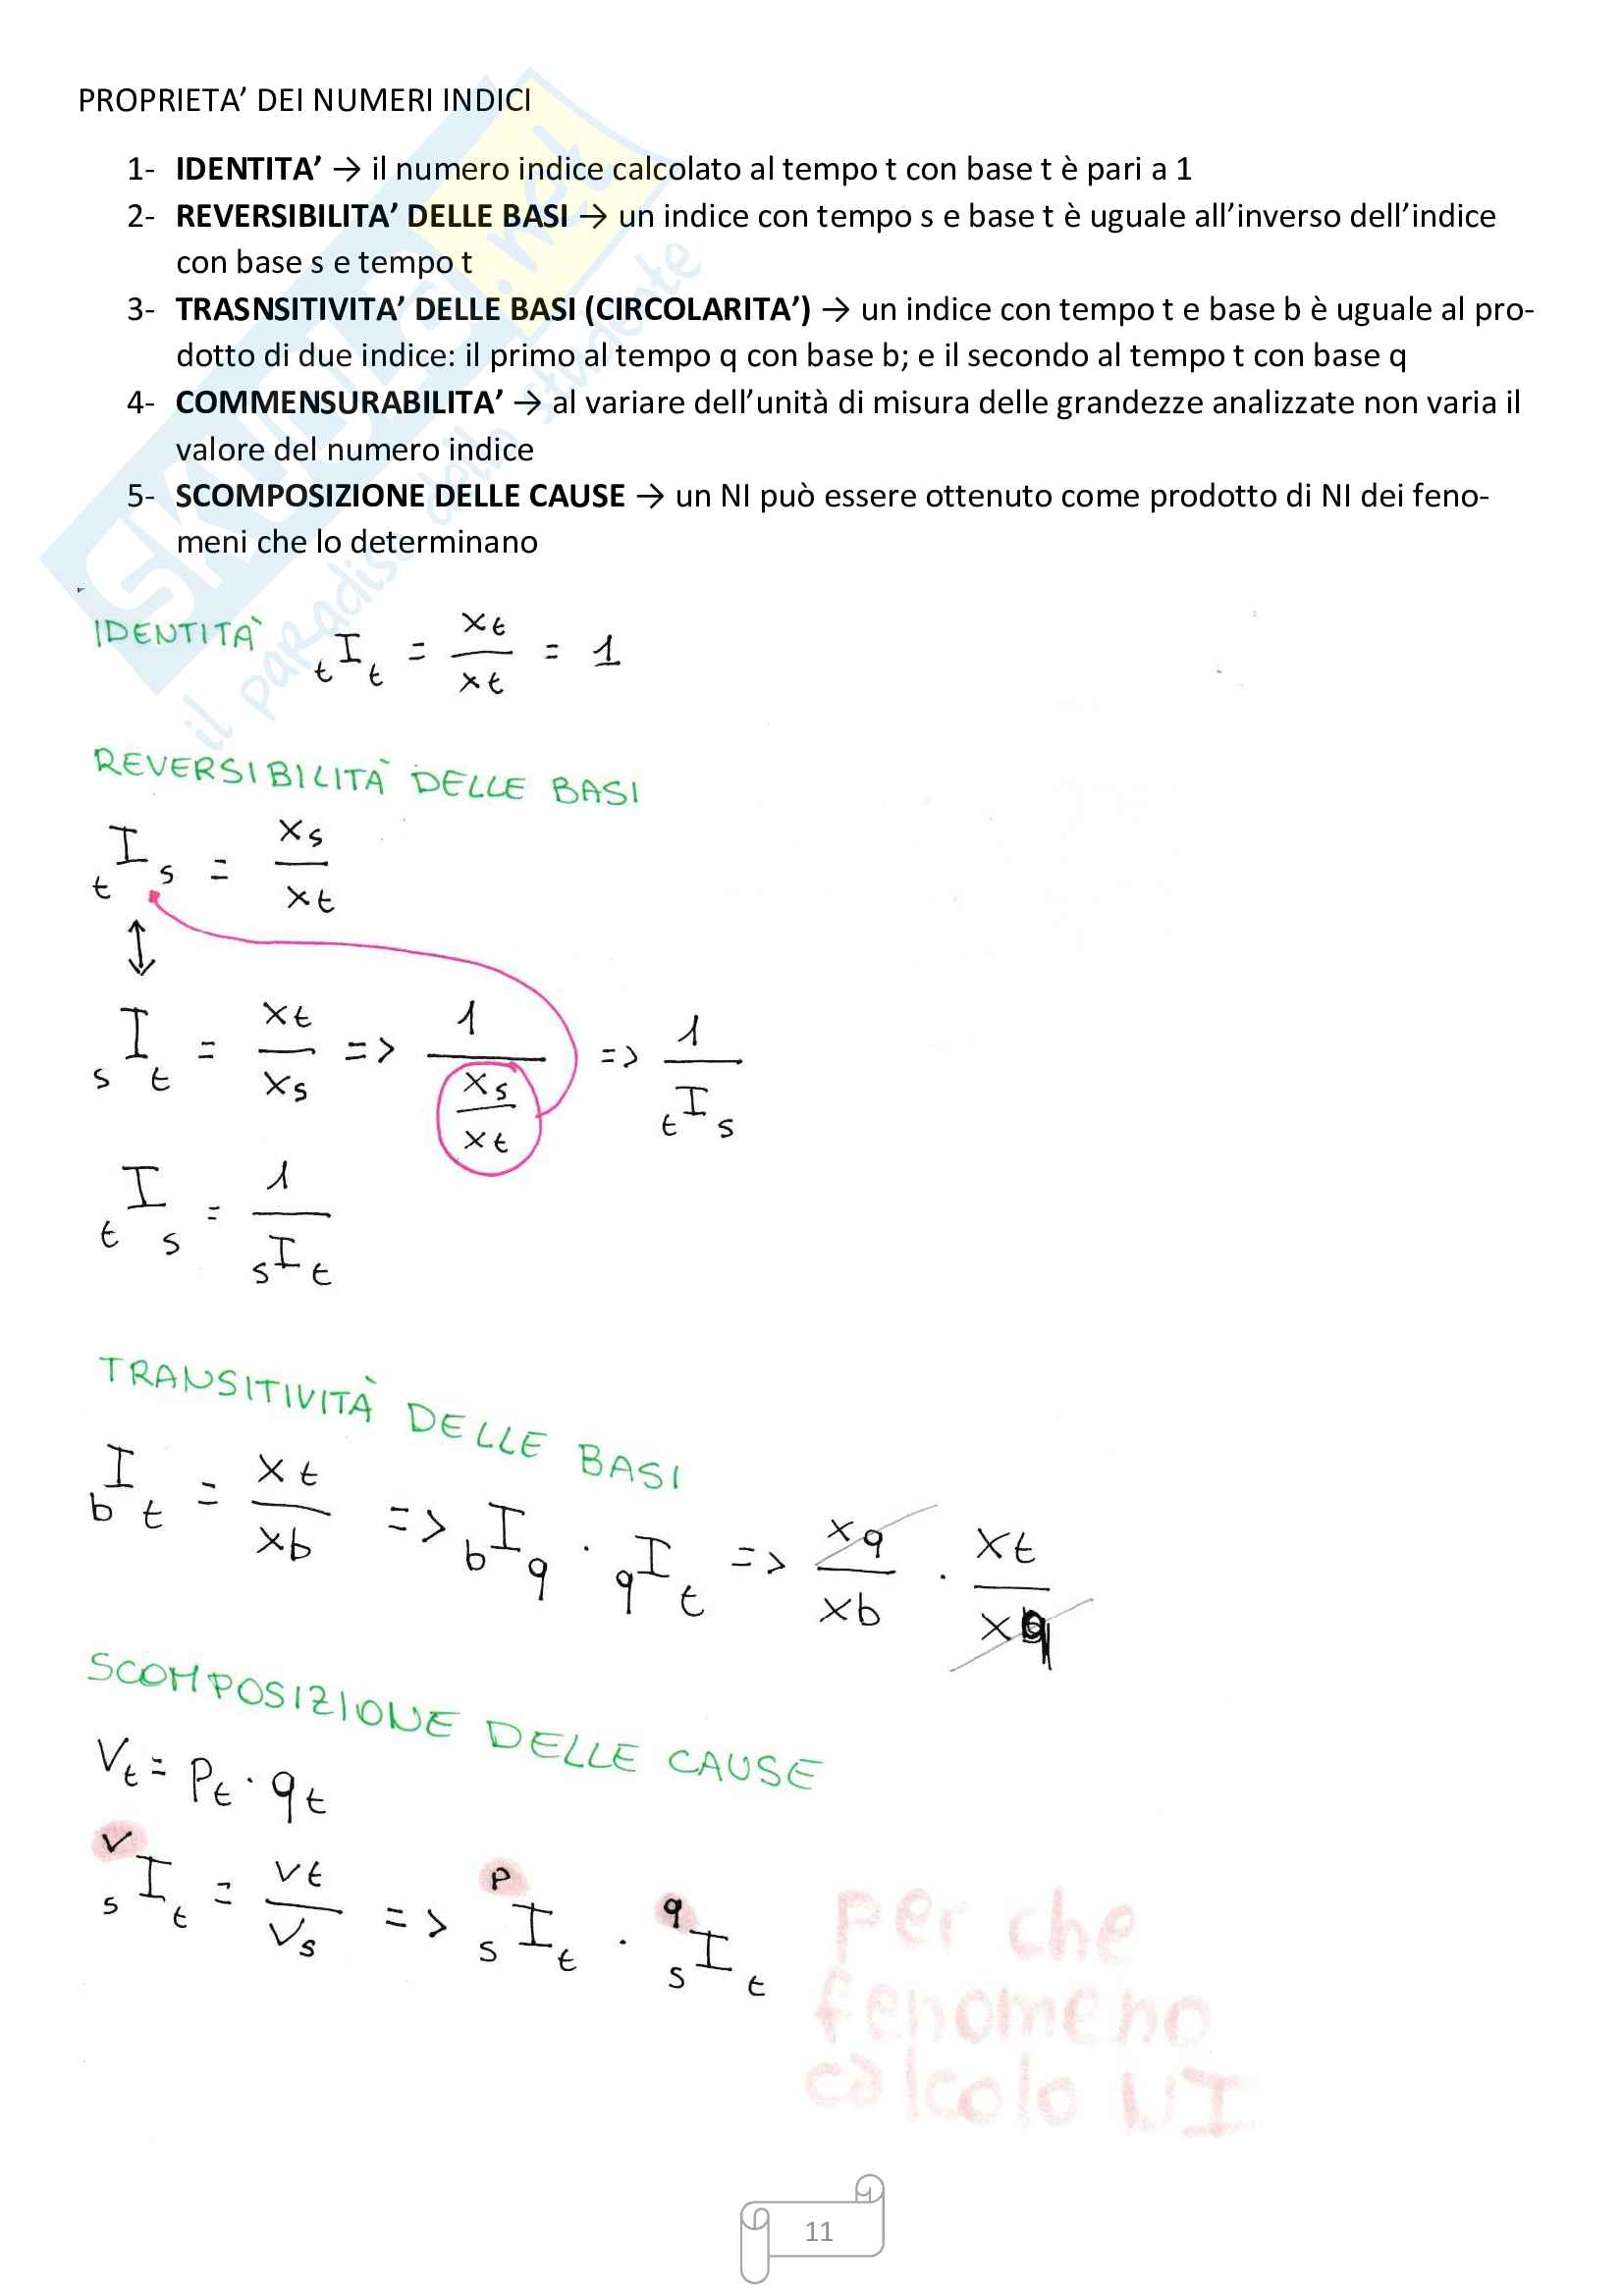 PROPRIETA’ DEI NUMERI INDICI
1- IDENTITA’ → il numero indice calcolato al tempo t con base t è pari a 1
2- REVERSIBILITA’ DELLE BASI → un indice con tempo s e base t è uguale all’inverso dell’indice
con base s e tempo t
3- TRASNSITIVITA’ DELLE BASI (CIRCOLARITA’) → un indice con tempo t e base b è uguale al pro-
dotto di due indice: il primo al tempo q con base b; e il secondo al tempo t con base q
4- COMMENSURABILITA’ → al variare dell’unità di misura delle grandezze analizzate non varia il
valore del numero indice
5- SCOMPOSIZIONE DELLE CAUSE → un NI può essere ottenuto come prodotto di NI dei feno-
meni che lo determinano
SKUOLA.net
il paradiso dello studente
IDENTITÀ tIt = xt / xt = 1
REVERSIBILITÀ DELLE BASI
tIs = xs / xt
↕
sIt = xt / xs => 1 / (xs / xt) => 1 / tIs
tIs = 1 / sIt
TRANSITIVITÀ DELLE BASI
bIt = xt / xb => bIq · qIt => xq / xb · xt / xq
SCOMPOSIZIONE DELLE CAUSE
Vt = Pt · qt
V sIt = Vt / Vs => P sIt · q sIt
per che
fenomeno
calcolo NI
11